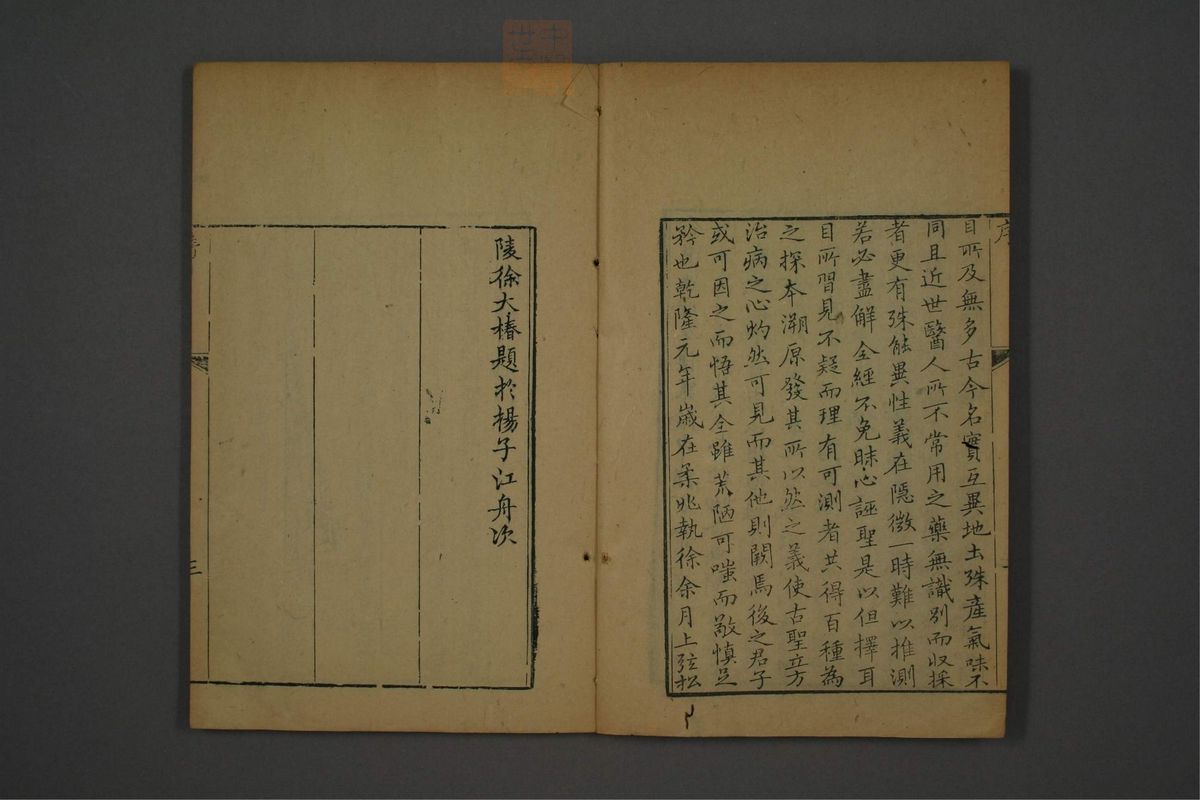 序
目所及無多古今名實互異地土殊産氣味不
同且近世醫人所不常用之藥無識別而收採
者更有殊能異性義在隱微一時難以推測
若必盡解全經不免昧心誣聖是以但擇耳
目所習見不疑而理有可測者共得百種為
之探本溯原發其所以然之義使古聖立方
治病之心灼然可見而其他則闕焉後之君子
或可因之而悟其全雖荒陋可嗤而敬慎足
矜也乾隆元年歲在柔兆執徐余月上弦松
陵徐大椿題於楊子江舟次
三